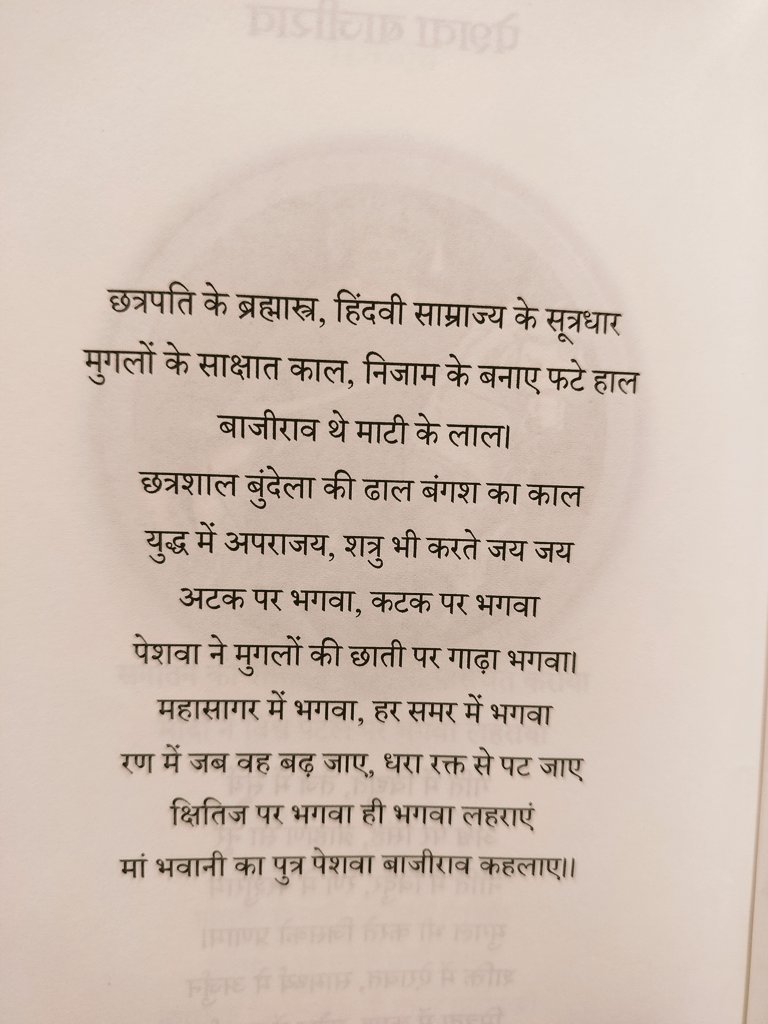 छत्रपति के ब्रह्मास्त्र, हिंदवी साम्राज्य के सूत्रधार
मुगलों के साक्षात काल, निजाम के बनाए फटे हाल
बाजीराव थे माटी के लाल।
छत्रशाल बुंदेला की ढाल बंगश का काल
युद्ध में अपराजय, शत्रु भी करते जय जय
अटक पर भगवा, कटक पर भगवा
पेशवा ने मुगलों की छाती पर गाढ़ा भगवा।
महासागर में भगवा, हर समर में भगवा
रण में जब वह बढ़ जाए, धरा रक्त से पट जाए
क्षितिज पर भगवा ही भगवा लहराएं
मां भवानी का पुत्र पेशवा बाजीराव कहलाए।।